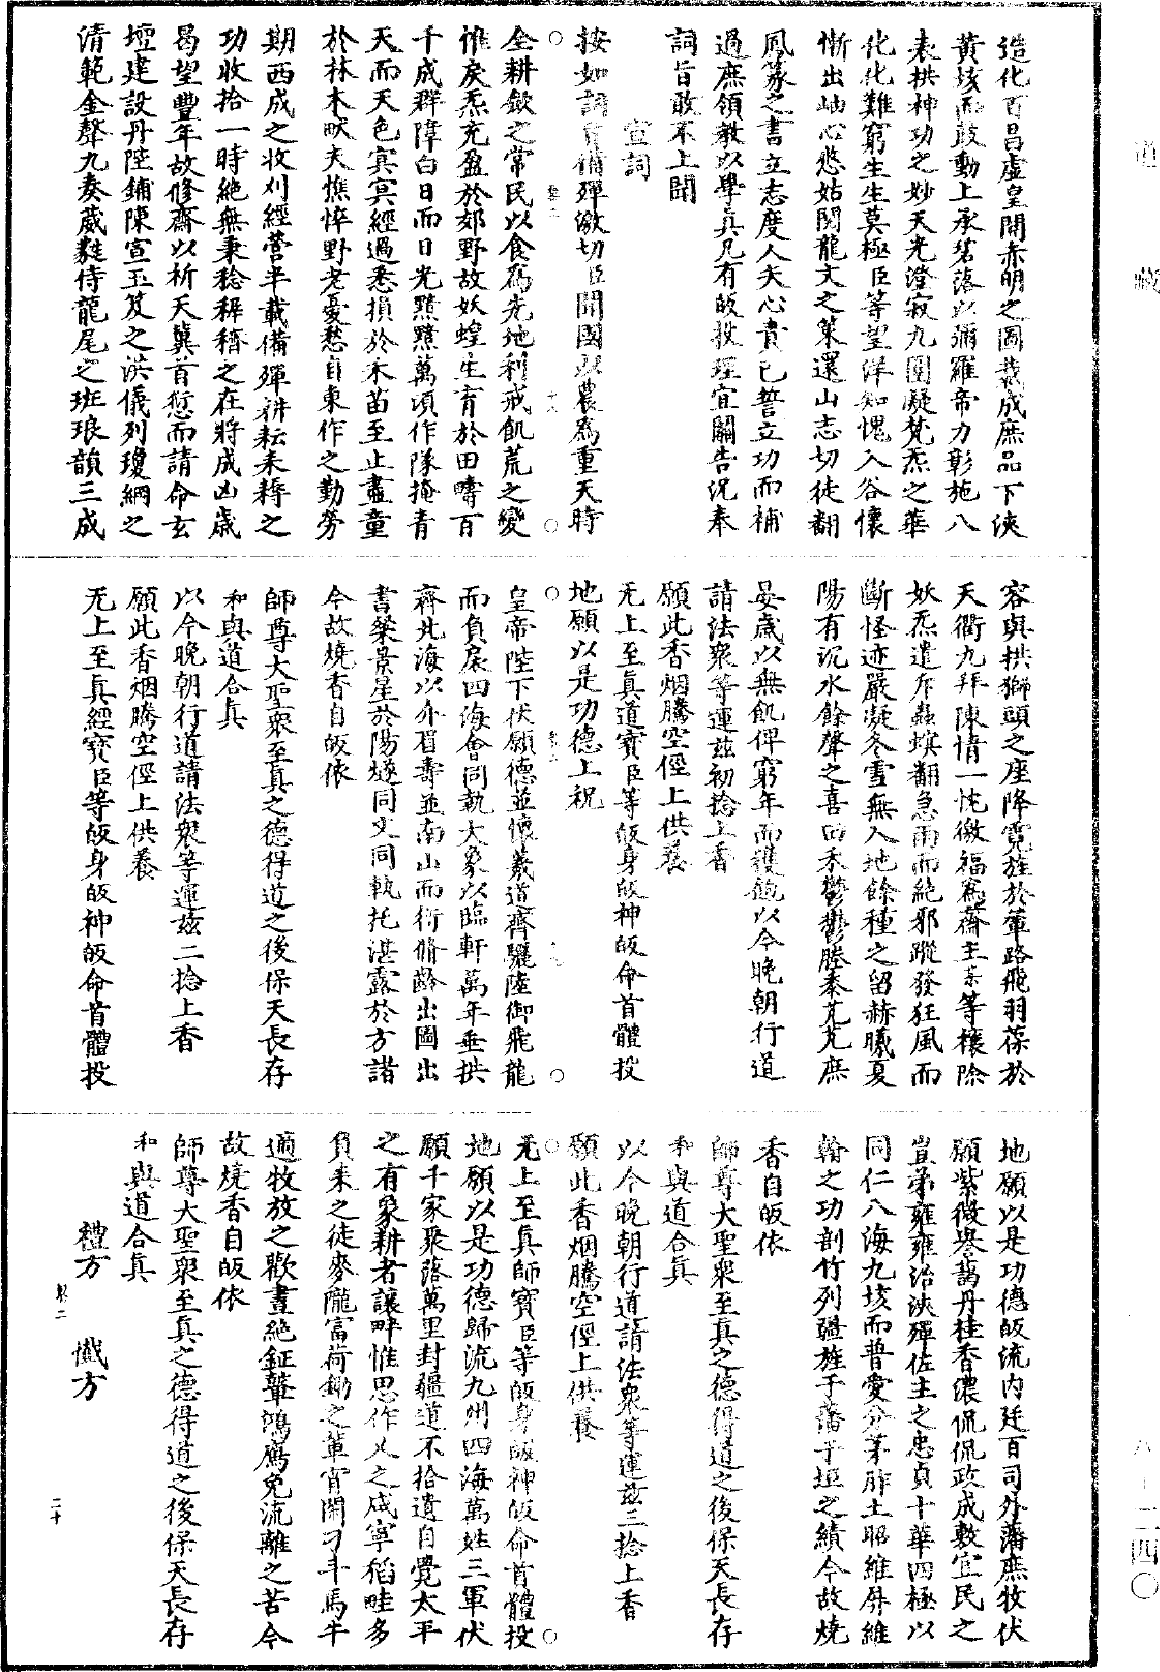 造化百昌虛皇開赤明之圖裁成庶品下浹
黃垓而鼓動上承碧落以彌羅帝力彰施八
表拱神功之妙天光澄寂九圍凝梵炁之華
化化難窮生生莫極臣等望洋知愧入谷懷
慚出岫心愁姑閱龍文之策還山志切徒翻
鳳篆之書立志度人夫心責己誓立功而補
過庶領教以學眞凡有皈投理宜關告況奉
詞旨敢不上聞
宣詞
按如詞旨備殫激切臣聞國以農爲重天時
全耕斂之常民以食爲先地利戒飢荒之變
惟戾炁充盈於郊野故妖蝗生育於田疇百
千成群障白日而日光黯黯萬頃作隊掩青
天而天色冥冥經過悉損於禾苗至止盡童
於林木畎夫憔悴野老憂愁自東作之勤勞
期西成之收刈經營半載備殫耕耘耒耨之
功收拾一時絶無秉稔稺穧之在將成凶歲
曷望豐年故修齋以祈天冀首愆而請命玄
壇建設丹陛鋪陳宣玉笈之洪儀列瓊綱之
清範金聲九奏葳蕤侍龍尾之班琅韻三成
容與拱獅頭之座降霓旌於輦路飛羽葆於
天衢九拜陳情一忱徼福爲齋主某等禳除
妖炁遣斥蟲螟翻急雨而絶邪蹤發狂風而
斷怪迹嚴凝冬雪無入地餘種之留赫曦夏
陽有沉水餘聲之喜田禾鬱鬱勝黍芃芃庶
晏歲以無飢俾窮年而獲飽以今晚朝行道
請法衆等運茲初捻上香
願此香烟騰空徑上供養
无上至眞道寶臣等皈身皈神皈命首體投
地願以是功德上祝
皇帝陛下伏願德並懷羲道齊驪陸御飛龍
而負扆四海會同執大象以臨軒萬年垂拱
齊北海以介眉壽並南山而衍脩齡出圖出
書燦景星於陽燧同文同軌托湛露於方諸
今故燒香自皈依
師尊大聖衆至眞之德得道之後保天長存
和與道合眞
以今晚朝行道請法衆等運茲二捻上香
願此香烟騰空徑上供養
无上至眞經寶臣等皈身皈神皈命首體投
地願以是功德皈流內廷百司外藩庶牧伏
願紫薇奐藹丹桂香濃侃侃政成敷宣民之
豈弟雍雍治浹殫佐主之忠貞十華四極以
同仁八海九垓而普愛分茅胙土昭維屏維
翰之功剖竹列疆旌于藩于垣之績今故燒
香自皈依
師尊大聖衆至眞之德得道之後保天長存
和與道合眞
以今晚朝行道請法衆等運茲三捻上香
願此香烟騰空徑上供養
无上至眞師寶臣等皈身皈神皈命首體投
地願以是功德歸流九州四海萬姓三軍伏
願千家聚落萬里封疆道不拾遺自覺太平
之有象耕者讓畔惟思作乂之咸寧稻畦多
負耒之徒麥隴富荷鋤之輩宵閑刁斗馬牛
適牧放之歡晝絶鉦鼙鴻鴈免流離之苦今
故燒香自皈依
師尊大聖衆至眞之德得道之後保天長存
和與道合眞
禮方　懺方
卷二　二十
道藏